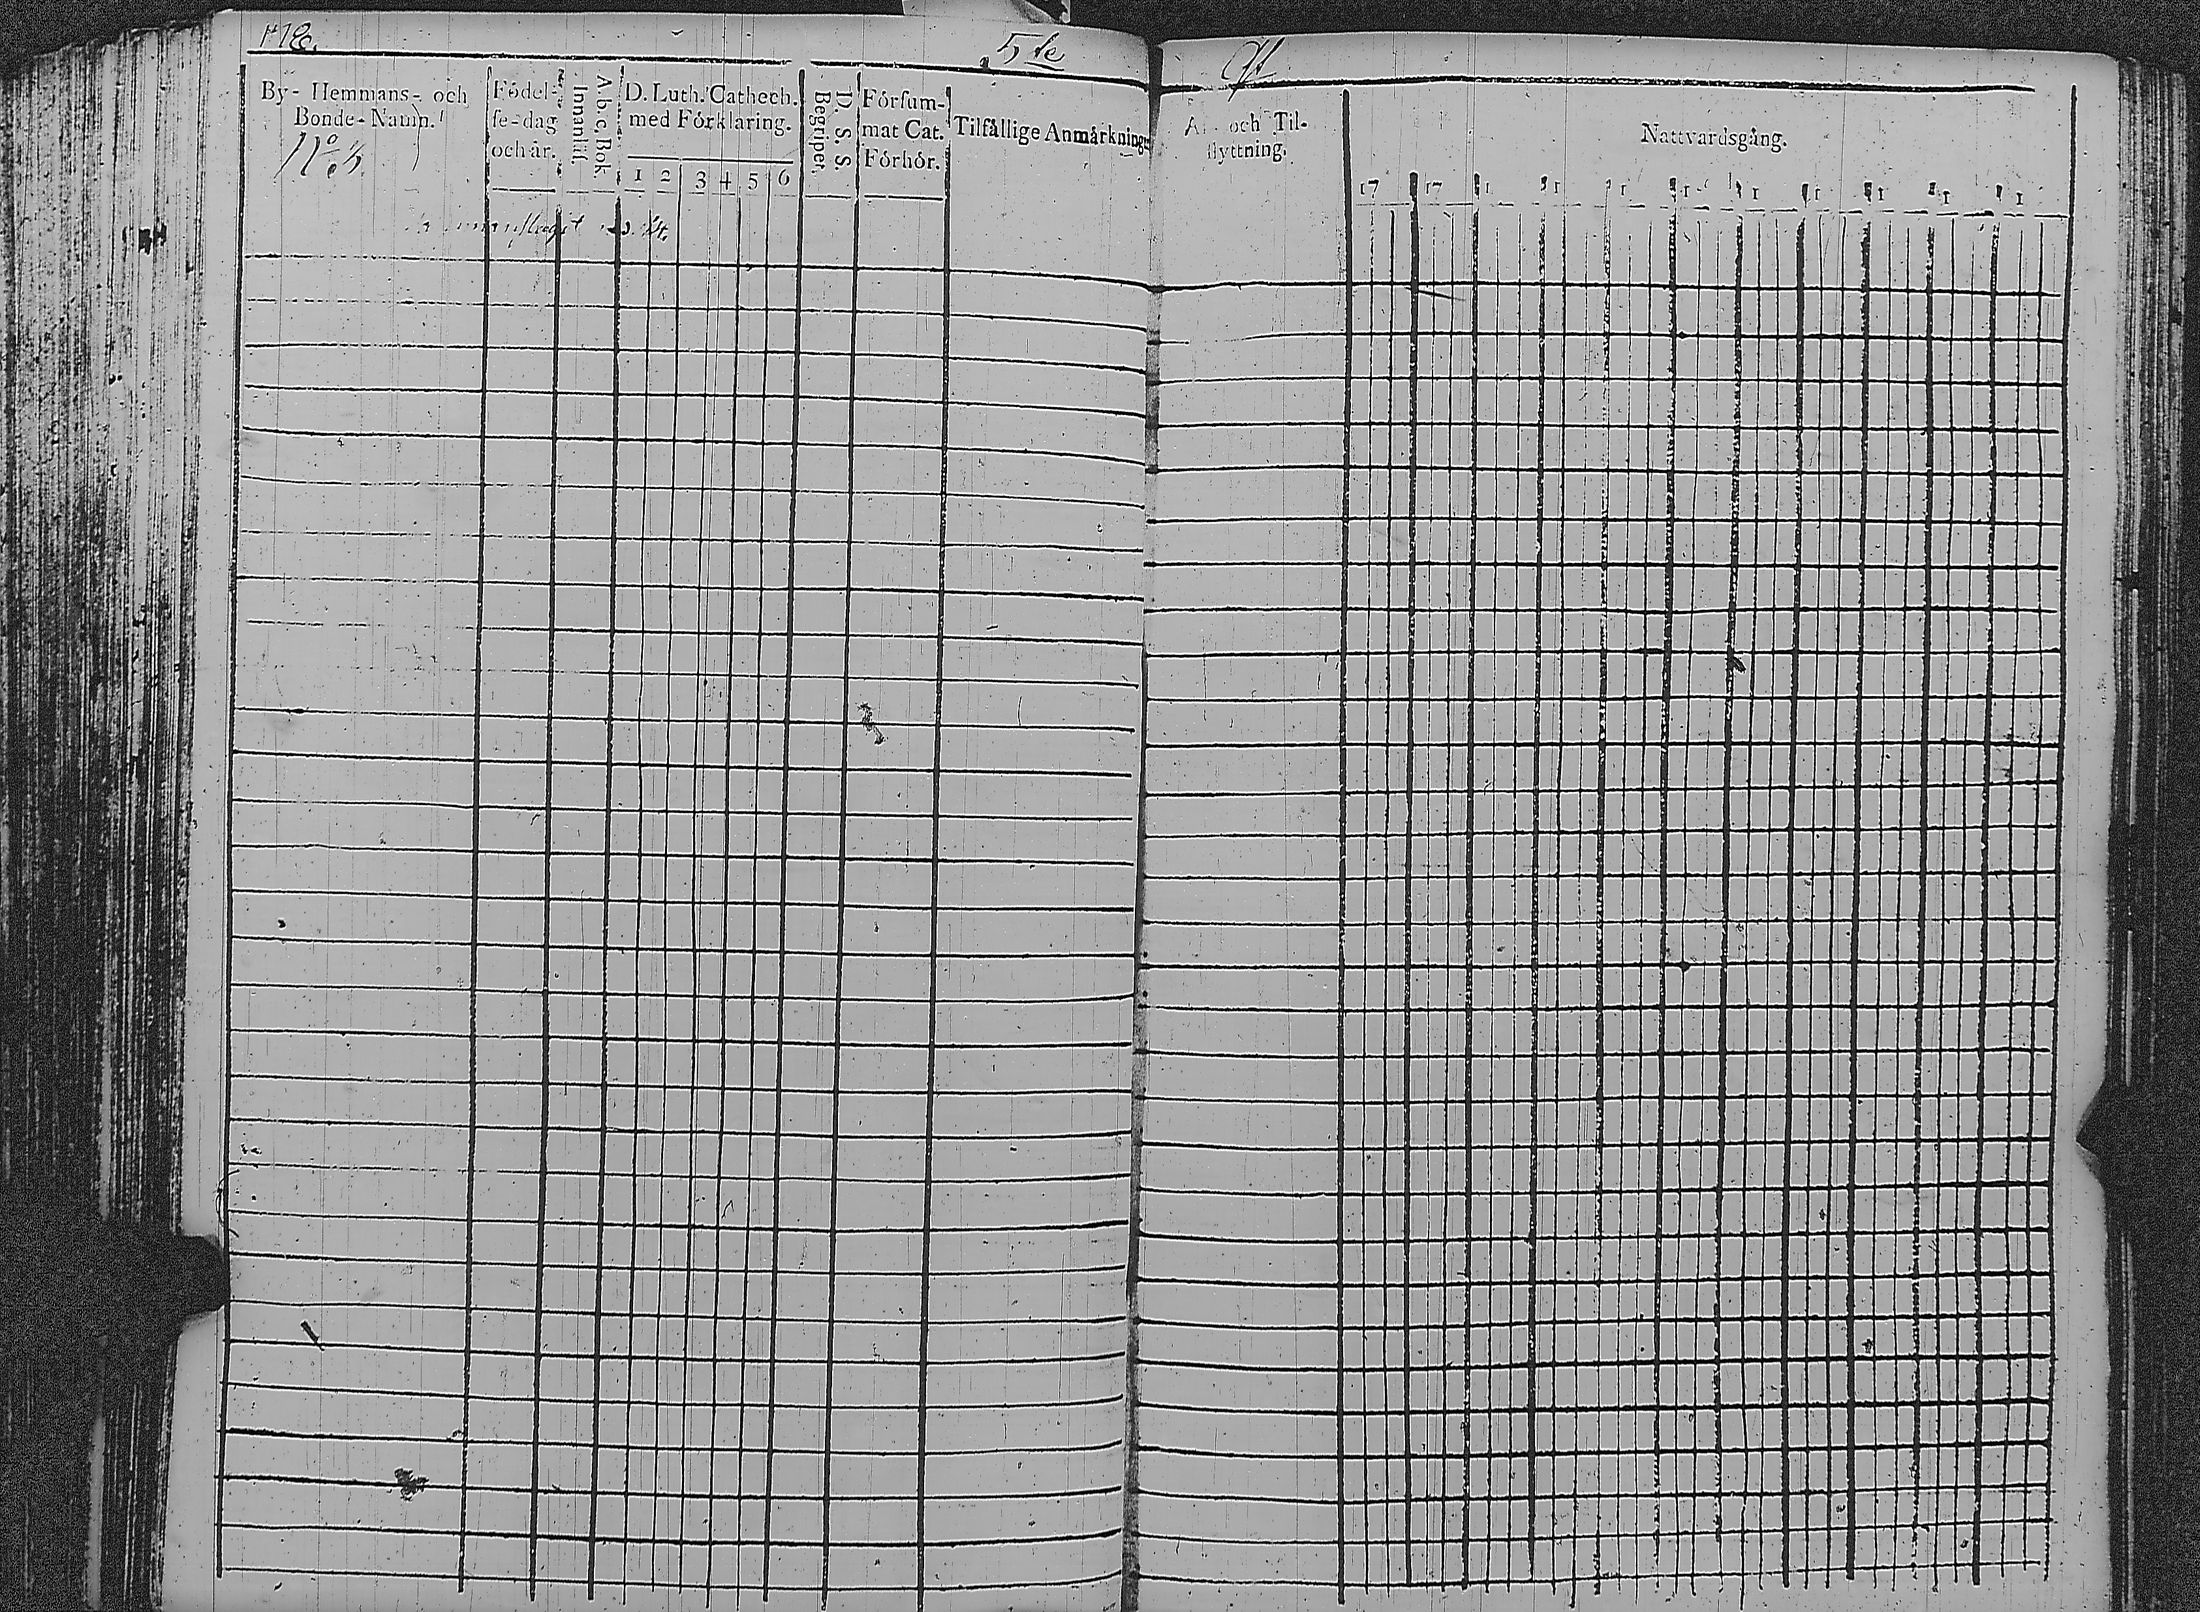 5te
By- Hemmans- och
Bonde-Namn.
Födel-
se-dag
och år.
Innantil.
A b c, Bok
D. Luth. Cathech.
med Förklaring.
1 2 3 4 5 6
D. S. S.
Begripet.
Försum-
mat Cat.
Förhör.
Tilfällige Anmärkning
och Til-
flyttning.
Nattvardsgång.
17 17 1 1 1 1 1 1 1 1 1